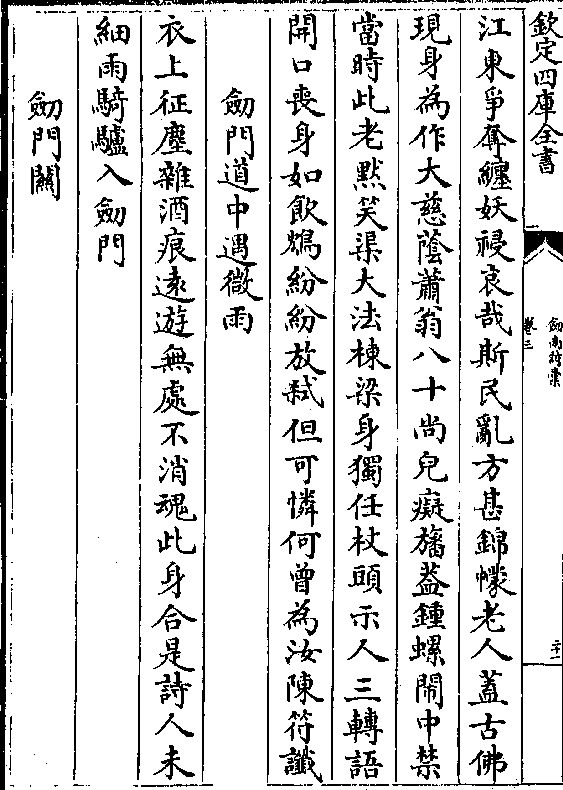 欽定四庫全書
劒南詩藁
卷三
二十一
江東爭奪纏妖祲哀哉斯民亂方甚錦幪老人蓋古佛
現身為作大慈蔭蕭翁八十尚兒癡旛蓋鍾螺鬧中禁
當時此老默笑渠大法棟梁身獨任杖頭示人三轉語
開口喪身如飲鴆紛紛放弑但可憐何曾為汝陳符讖
劒門道中遇微雨
衣上征塵雜酒痕遠遊無處不消魂此身合是詩人未
細雨騎驢入劒門
劒門關